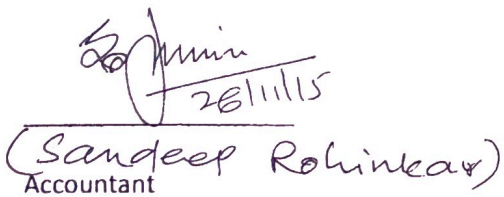 26/11/15
(Sandeep Rohinkar)
Accountant